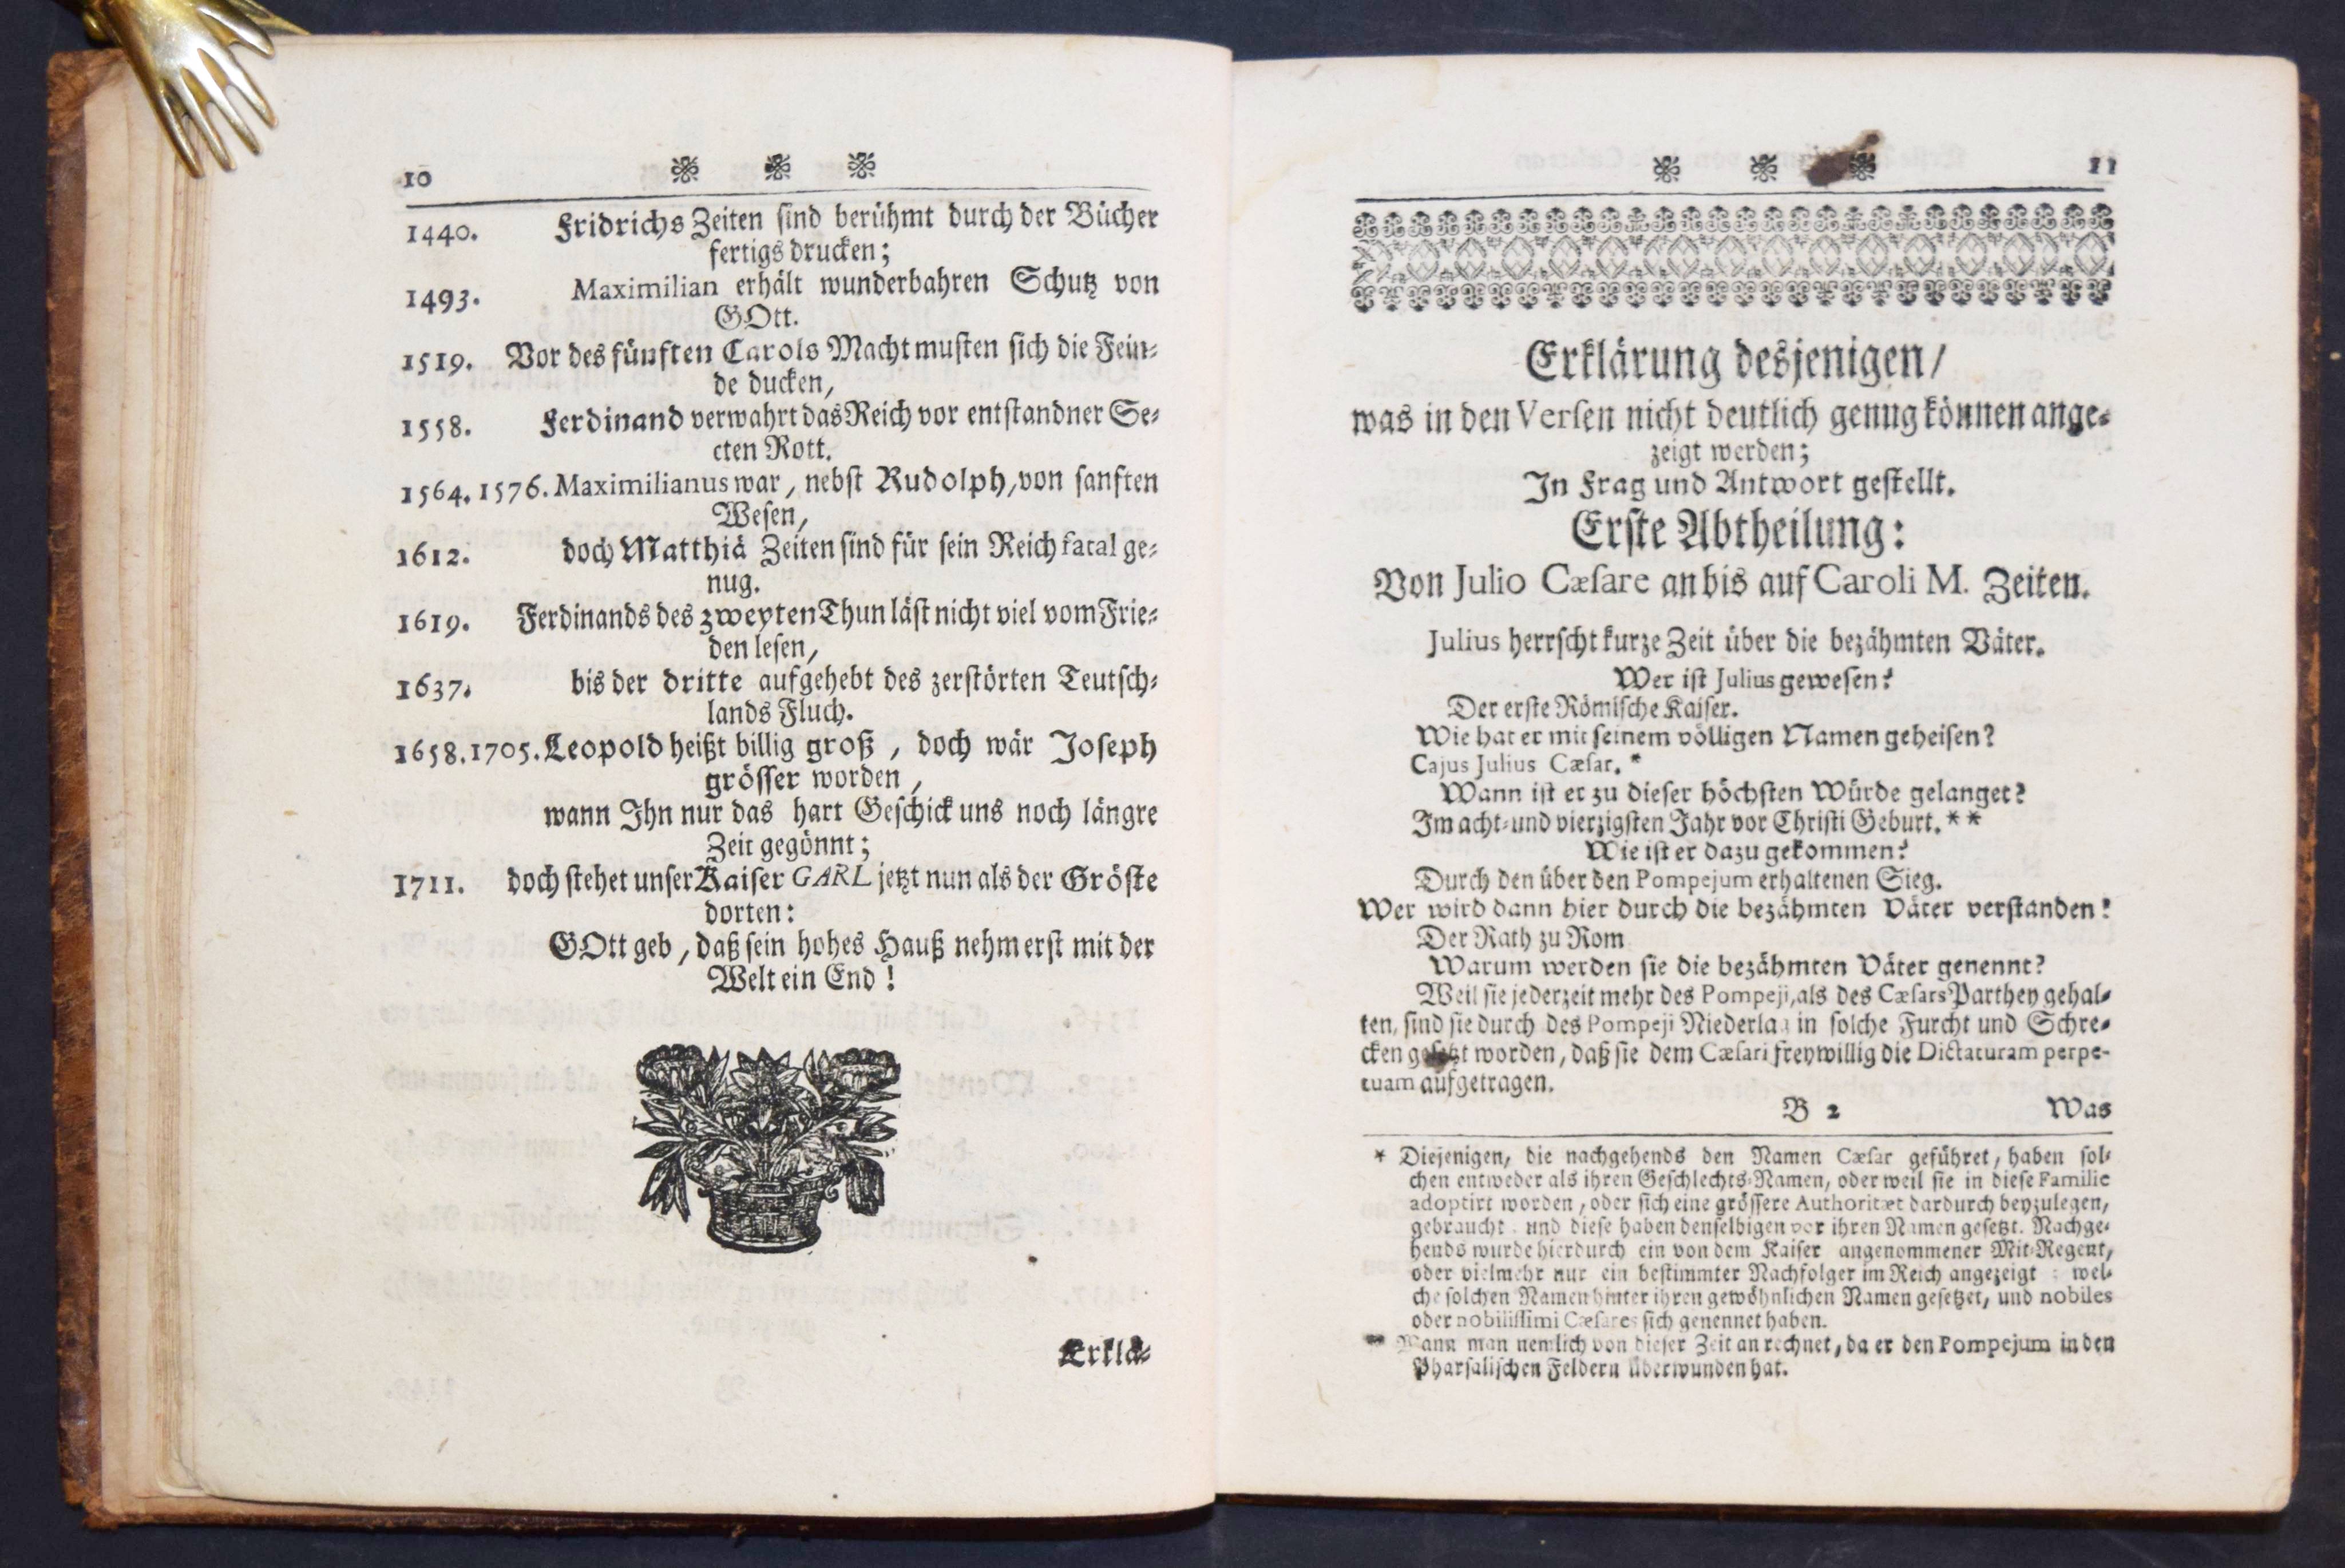 10
1440. Fridrichs Zeiten sind berühmt durch der Bücher
fertigs drucken;
1493. Maximilian erhält wunderbahren Schutz von
GOtt.
1519. Vor des fünften Carols Macht musten sich die Fein-
de ducken,
1558. Ferdinand verwahrt das Reich vor entstandner Se-
cten Rott.
1564. 1576. Maximilianus war, nebst Rudolph, von sanften
Wesen,
1612. doch Matthiä Zeiten sind für sein Reich fatal ge-
nug.
1619. Ferdinands des zweyten Thun läst nicht viel vom Frie-
den lesen,
1637. bis der dritte aufgehebt des zerstörten Teutsch-
lands Fluch.
1658. 1705. Leopold heißt billig groß, doch wär Joseph
grösser worden,
wann Ihn nur das hart Geschick uns noch längre
Zeit gegönnt;
1711. doch stehet unser Kaiser CARL jetzt nun als der Gröste
dorten:
GOtt geb, daß sein hohes Hauß nehm erst mit der
Welt ein End!
Erklä-
11
Erklärung desjenigen/
was in den Versen nicht deutlich genug können ange-
zeigt werden;
In Frag und Antwort gestellt.
Erste Abtheilung:
Von Julio Cæsare an bis auf Caroli M. Zeiten.
Julius herrscht kurze Zeit über die bezähmten Väter.
Wer ist Julius gewesen?
Der erste Römische Kaiser.
Wie hat er mit seinem völligen Namen geheisen?
Cajus Julius Cæsar. *
Wann ist er zu dieser höchsten Würde gelanget?
Im acht-und vierzigsten Jahr vor Christi Geburt. * *
Wie ist er dazu gekommen?
Durch den über den Pompejum erhaltenen Sieg.
Wer wird dann hier durch die bezähmten Väter verstanden?
Der Rath zu Rom
Warum werden sie die bezähmten Väter genennt?
Weil sie jederzeit mehr des Pompeji, als des Cæsars Parthey gehal-
ten, sind sie durch des Pompeji Niederlag in solche Furcht und Schre-
cken gesetzt worden, daß sie dem Cæsari freywillig die Dictaturam perpe-
tuam aufgetragen.
B 2 Was
* Diejenigen, die nachgehends den Namen Cæsar geführet, haben sol-
chen entweder als ihren Geschlechts-Namen, oder weil sie in diese Familie
adoptirt worden, oder sich eine grössere Authoritæt dardurch beyzulegen,
gebraucht. und diese haben denselbigen vor ihren Namen gesetzt. Nachge-
hends wurde hierdurch ein von dem Kaiser angenommener Mit-Regent,
oder vielmehr nur ein bestimmter Nachfolger im Reich angezeigt: wel-
che solchen Namen hinter ihren gewöhnlichen Namen gesetzet, und nobiles
oder nobilissimi Cæsares sich genennet haben.
** Wann man nemlich von dieser Zeit an rechnet, da er den Pompejum in den
Pharsalischen Feldern überwunden hat.